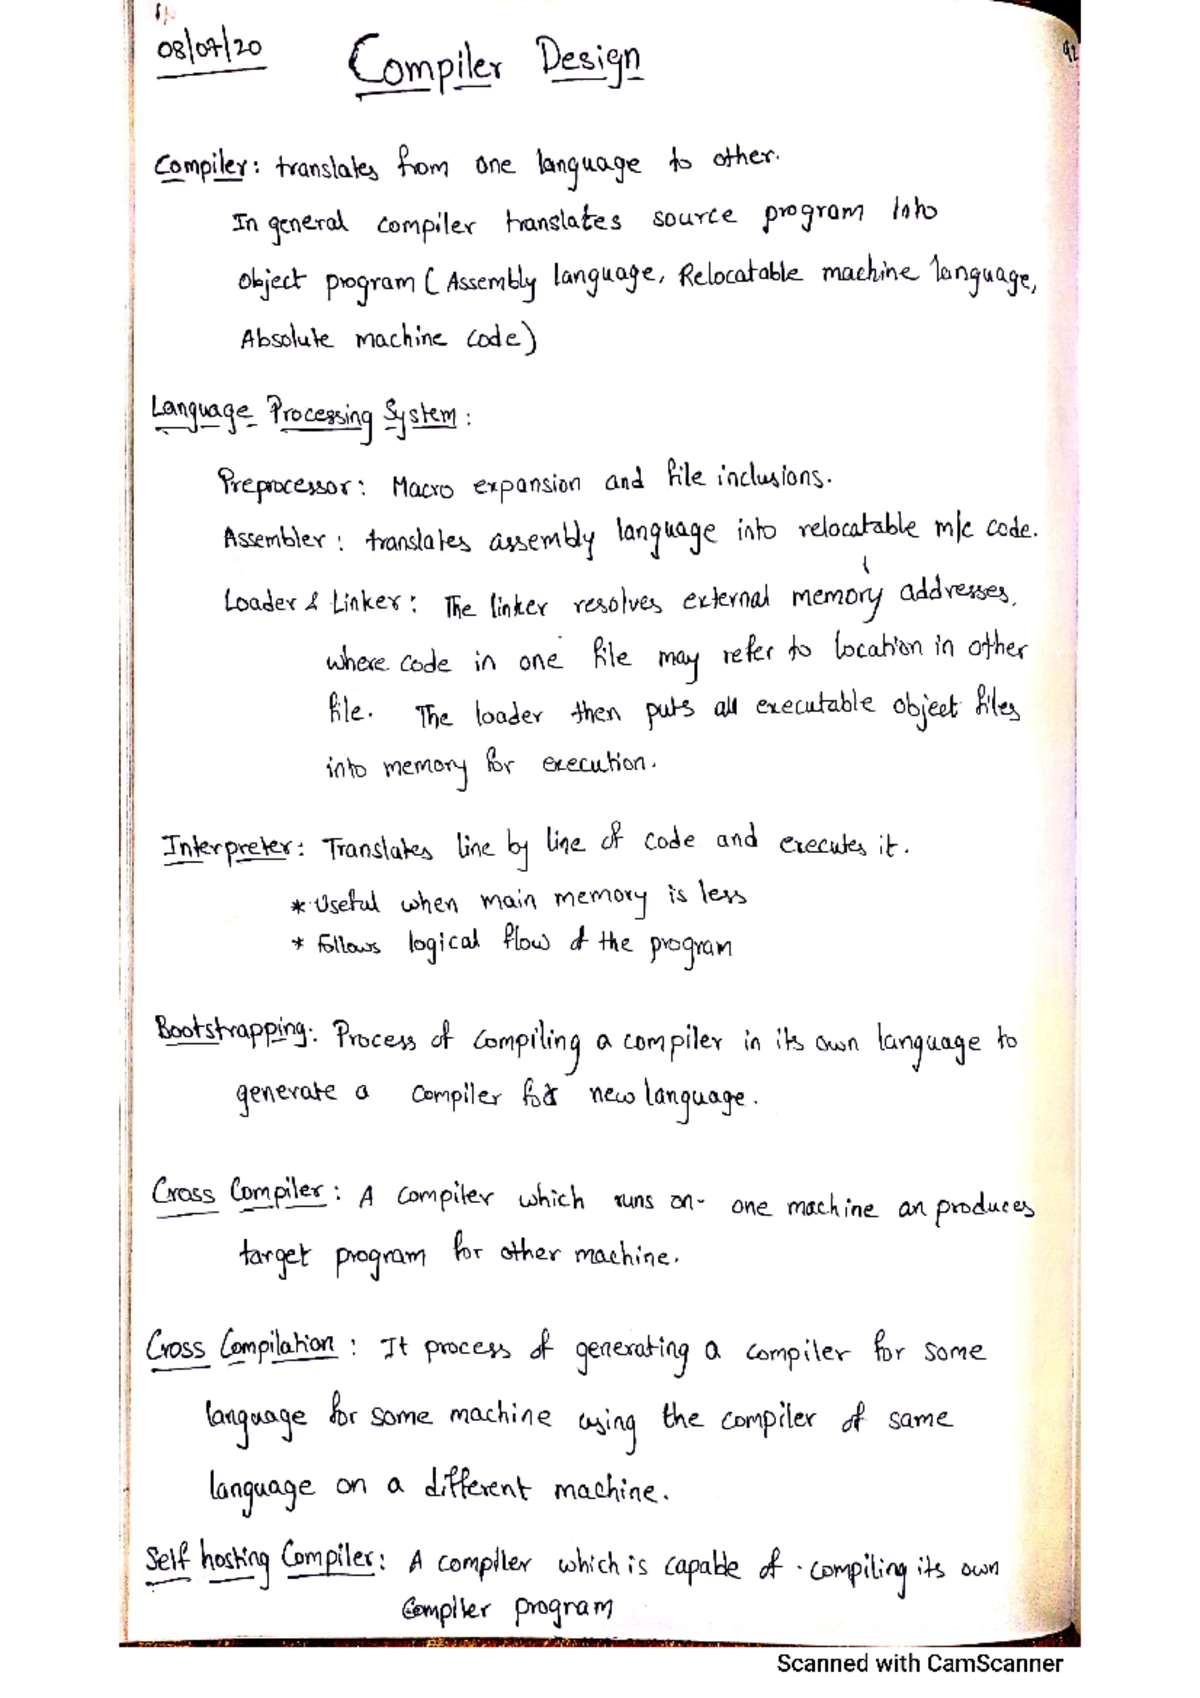 08/07/20
Compiler Design
92
Compiler: translates from one language to other.
In general compiler translates source program into
Object program (Assembly language, Relocatable machine language,
Absolute machine code)
Language Processing System:
Preprocessor: Macro expansion and file inclusions.
Assembler: translates assembly language into relocatable m/c code.
Loader & Linker: The linker resolves external memory addresses,
where code in one file may refer to location in other
file. The loader then puts all executable object files
into memory for execution.
Interpreter: Translates line by line of code and executes it.
* Useful when main memory is less
* Follows logical flow of the program
Bootstrapping: Process of compiling a compiler in its own language to
generate a compiler for new language.
Cross Compiler: A compiler which runs on one machine an produces
target program for other machine.
Cross Compilation: It process of generating a compiler for some
language for some machine using the compiler of same
language on a different machine.
Self hosting Compiler: A compiler which is capable of compiling its own
Compiler program
Scanned with CamScanner